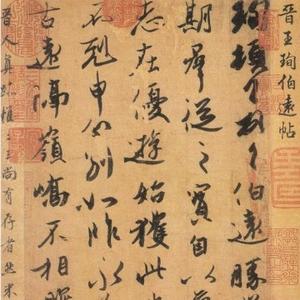 晉王珣伯遠帖
珣頓首頓首伯遠勝
期群從之寶自以
志在優遊始獲此
不剋申分別如昨永
古遠隔嶺嶠不相瞻
晉人真跡惟二王尚有存者然米